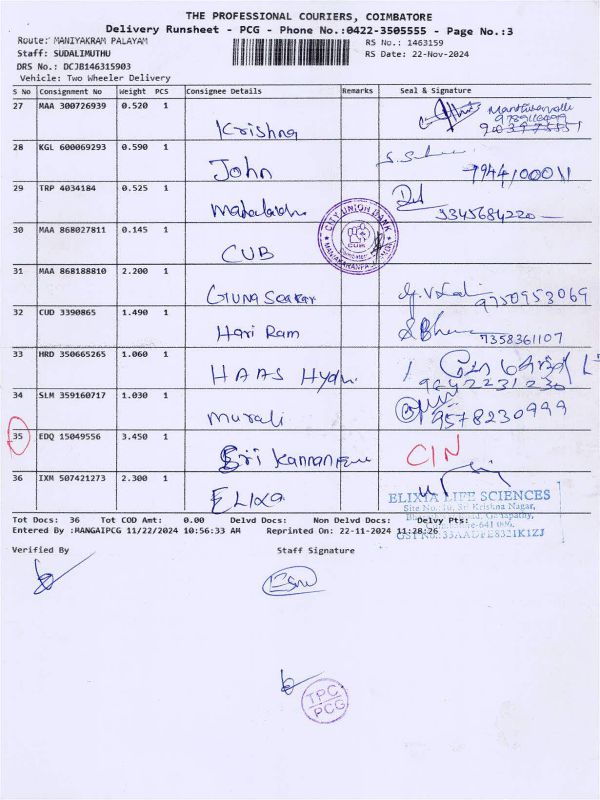 THE PROFESSIONAL COURIERS, COIMBATORE
Delivery Runsheet - PCG - Phone No.:0422-3505555 - Page No.:3
Route: MANIYAKRAM PALAYAM
RS No.: 1463159
Staff: SUDALIMUTHU
RS Date: 22-Nov-2024
DRS No.: DCJB146315903
Vehicle: Two Wheeler Delivery
S No Consignment No Weight PCS Consignee Details Remarks Seal & Signature
27 MAA 300726939 0.520 1 Krishna
28 KGL 600069293 0.590 1 John
29 TRP 4034184 0.525 1 3345684220
30 MAA 868027811 0.145 1 CUB
CITY UNION BANK
CUB
31 MAA 868188810 2.200 1 Guna Seakar 9750953069
32 CUD 3390865 1.490 1 Hari Ram 7358361107
33 HRD 350665265 1.060 1 HAAS 9842231230
34 SLM 359160717 1.030 1 Murali 9578230999
35 EDQ 15049556 3.450 1 Sri Kannan CIN
36 IXM 507421273 2.300 1 ELIXA
ELIXIA LIFE SCIENCES
Site No.:10, Sri Krishna Nagar,
Ganapathy,
Tot Docs: 36 Tot COD Amt: 0.00 Delvd Docs: Non Delvd Docs: Delvy Pts:
Entered By :MANGAIPCG 11/22/2024 10:56:33 AM Reprinted On: 22-11-2024 11:28:26
Verified By Staff Signature
TPC
PCG